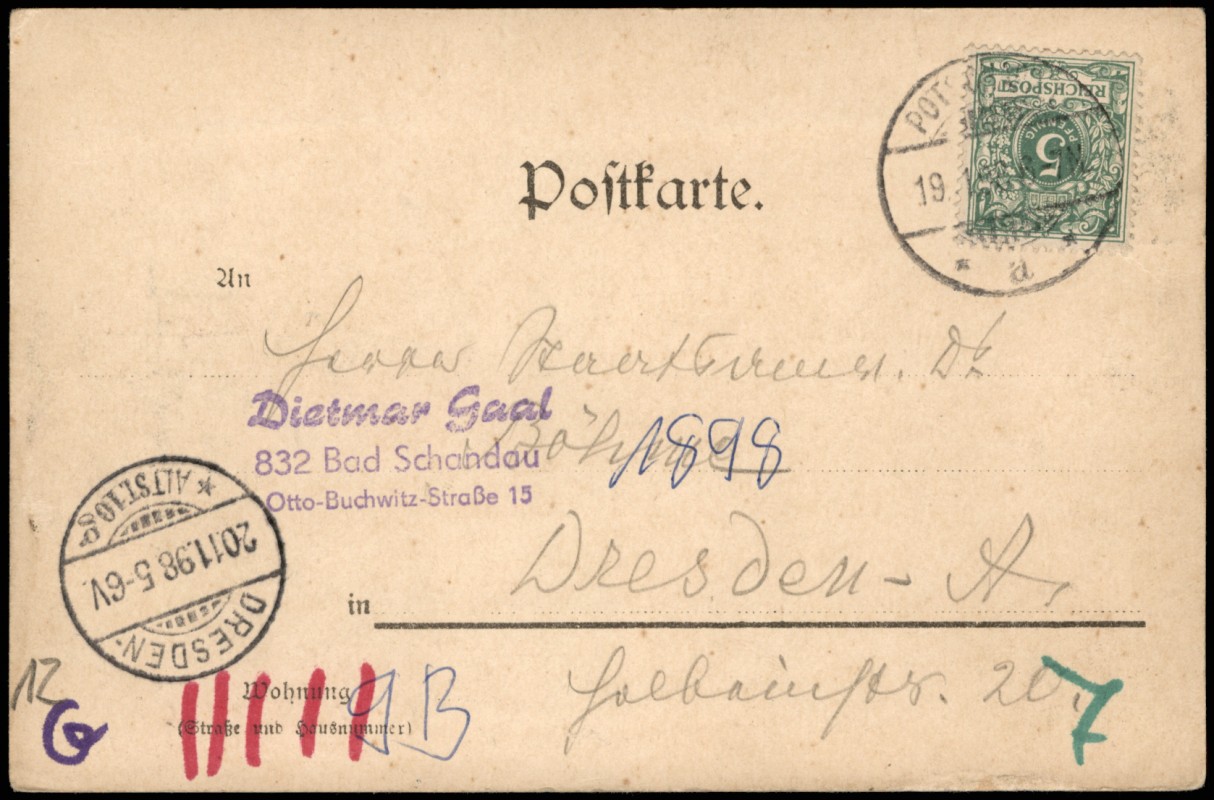 Postkarte.
REICHSPOST
5
PFENNIG
POTS
19.
a
An
Herrn Staatsanw. Dr.
Böhme
1898
Dietmar Gaal
832 Bad Schandau
Otto-Buchwitz-Straße 15
* ALTST. 10 8-9
20.11.98 5-6V.
DRESDEN-
in Dresden-A.
Wohnung
(Straße und Hausnummer)
Holbeinstr. 20.
12
9B
7